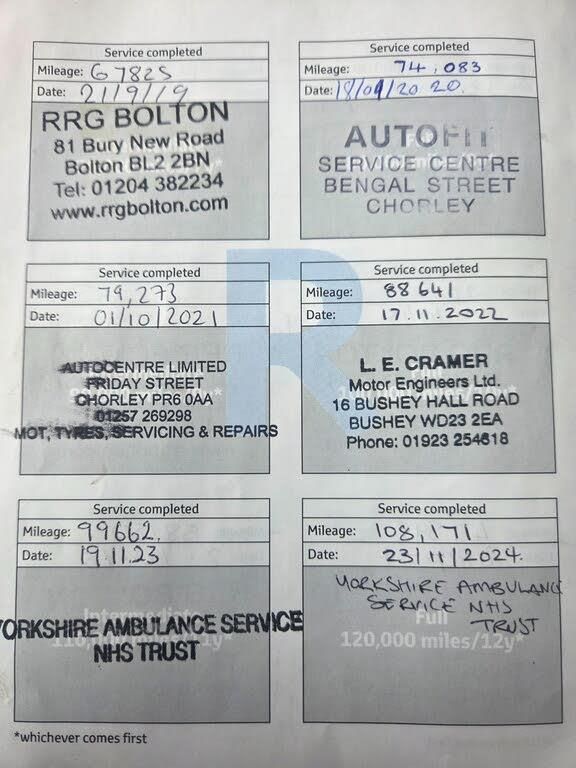 Service completed
Mileage: 67825
Date: 21/9/19
RRG BOLTON
81 Bury New Road
Bolton BL2 2BN
Tel: 01204 382234
www.rrgbolton.com
Service completed
Mileage: 74,083
Date: 18/09/20 20.
AUTOFIT
SERVICE CENTRE
BENGAL STREET
CHORLEY
Service completed
Mileage: 79,273
Date: 01/10/2021
AUTOCENTRE LIMITED
FRIDAY STREET
CHORLEY PR6 0AA
01257 269298
MOT, TYRES, SERVICING & REPAIRS
Service completed
Mileage: 88641
Date: 17.11.2022
L. E. CRAMER
Motor Engineers Ltd.
16 BUSHEY HALL ROAD
BUSHEY WD23 2EA
Phone: 01923 254618
Service completed
Mileage: 99662.
Date: 19.11.23
Intermediate
YORKSHIRE AMBULANCE SERVICE
NHS TRUST
Service completed
Mileage: 108,171
Date: 23/11/2024.
YORKSHIRE AMBULANCE
SERVICE NHS
TRUST
Full
120,000 miles/12y*
*whichever comes first
R